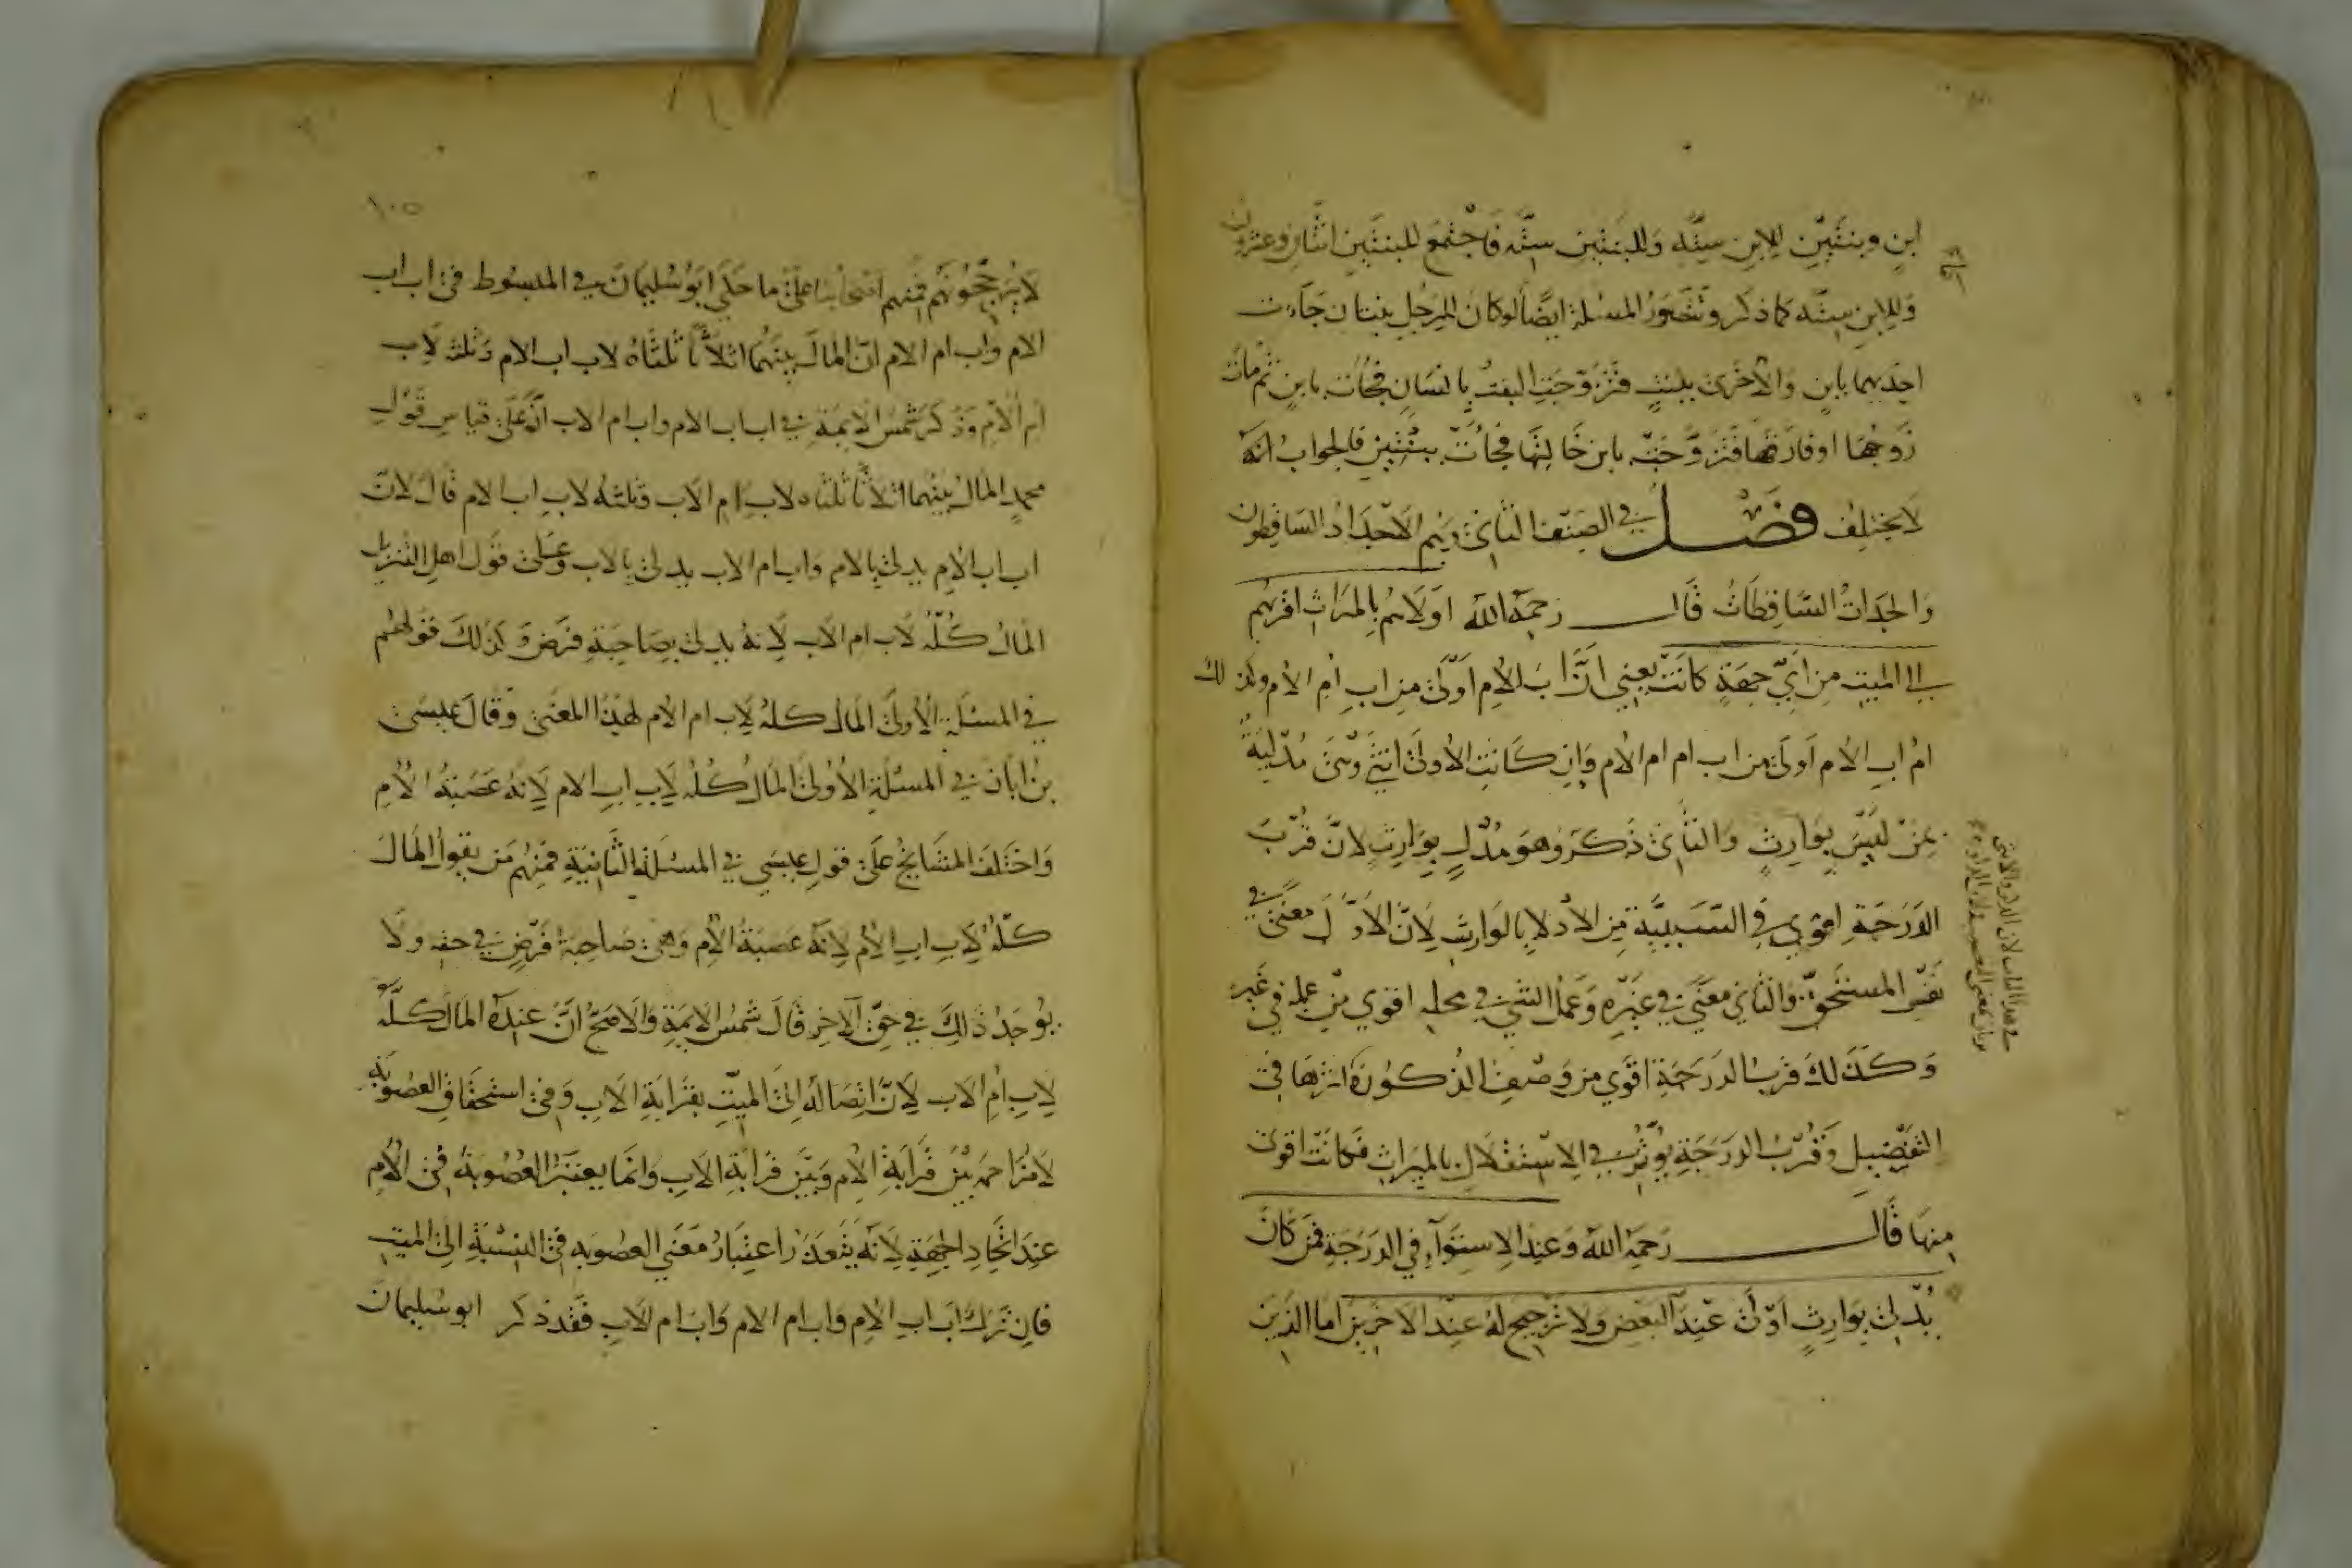 ابن وبنتين للابن ستة وللبنتين ستة فاجتمع للبنتين اثنان وعشرون
وللابن ستة كما ذكر وتصور المسئلة ايضا لو كان لرجل بنتان جآءت
احديهما بابن والاخرى ببنت فتزوجت البنت بانسان فجاءت بابن ثم مات
زوجها او فارقها فتزوجت بابن خالتها فجاءت ببنتين فالجواب انه
لا يختلف فصل في الصنف الثاني وهم الاجداد الساقطون
والجدات الساقطات قال رحمه الله اولاهم بالميراث اقربهم
الى الميت من اي جهة كانت يعني ان اب الام اولى من اب ام الام وكذلك
ام اب الام اولى من اب ام ام الام وان كانت الاولى انثى وهي مدلية
بمن ليس بوارث والثاني ذكر وهو مدل بوارث لان قرب
الدرجة اقوى في السببية من الادلاء بالوارث لان الاول معنى في
نفس المستحق والثاني معنى في غيره وعمل الشي في محله اقوى من عمله في غيره
وكذلك قرب الدرجة اقوى من وصف الذكورة اثرها في
التفضيل وقرب الدرجة يؤثر في الاستقلال بالميراث فكانت اقوى
منها قال رحمه الله وعند الاستوآء في الدرجة فمن كان
يدلي بوارث اولى عند البعض ولا ترجيح له عند الاخرين اما الذين
١٠٥
لا يرجحونهم فمنهم اصحابنا على ما حكى ابو سليمان في المبسوط في اب اب
الام واب ام الام ان المال بينهما اثلاثا ثلثاه لاب اب الام وثلثه لاب
ام الام وذكر شمس الايمة في اب اب الام واب ام الاب انه على قياس قول
محمد المال بينهما اثلاثا ثلثاه لاب ام الاب وثلثه لاب اب الام قال لان
اب اب الام يدلي بالام واب ام الاب يدلي بالاب وعلى قول اهل التنزيل
المال كله لاب ام الاب لانه يدلي بصاحبة فرض وكذلك قولهم
في المسئلة الاولى المال كله لاب ام الام لهذا المعنى وقال عيسى
بن ابان في المسئلة الاولى المال كله لاب اب الام لانه عصبة الام
واختلف المشايخ على قول عيسى في المسئلة الثانية فمنهم من يقول المال
كله لاب اب الام لانه عصبة الام وهي صاحبة فرض في حقه ولا
يوجد ذلك في حق الآخر قال شمس الايمة والاصح ان عنده المال كله
لاب ام الاب لان اتصاله الى الميت بقرابة الاب وفي استحقاق العصوبة
لا مزاحمة بين قرابة الام وبين قرابة الاب وانما يعتبر العصوبة في الام
عند اتحاد الجهة لانه يتعذر اعتبار معنى العصوبه في النسبة الى الميت
فان ترك اب اب الام واب ام الام واب ام الاب فقد ذكر ابو سليمان